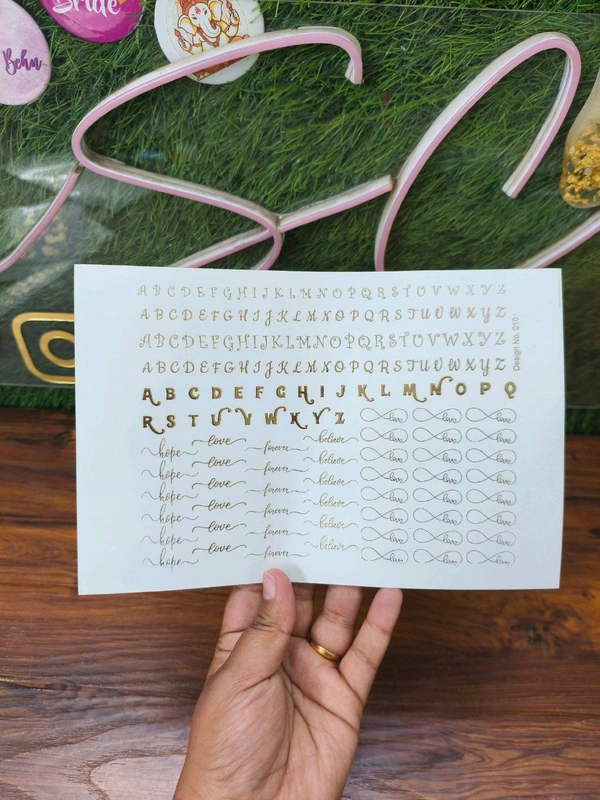 Bride
Behn
A B C D E F G H I J K L M N O P Q R S T U V W X Y Z
A B C D E F G H I J K L M N O P Q R S T U V W X Y Z
A B C D E F G H I J K L M N O P Q R S T U V W X Y Z
A B C D E F G H I J K L M N O P Q R S T U V W X Y Z
A B C D E F G H I J K L M N O P Q
R S T U V W X Y Z love love love
hope love forever believe love love love
hope love forever believe love love love
hope love forever believe love love love
hope love forever believe love love love
hope love forever believe love love love
hope love forever believe love love love
love love love
Design No. 010